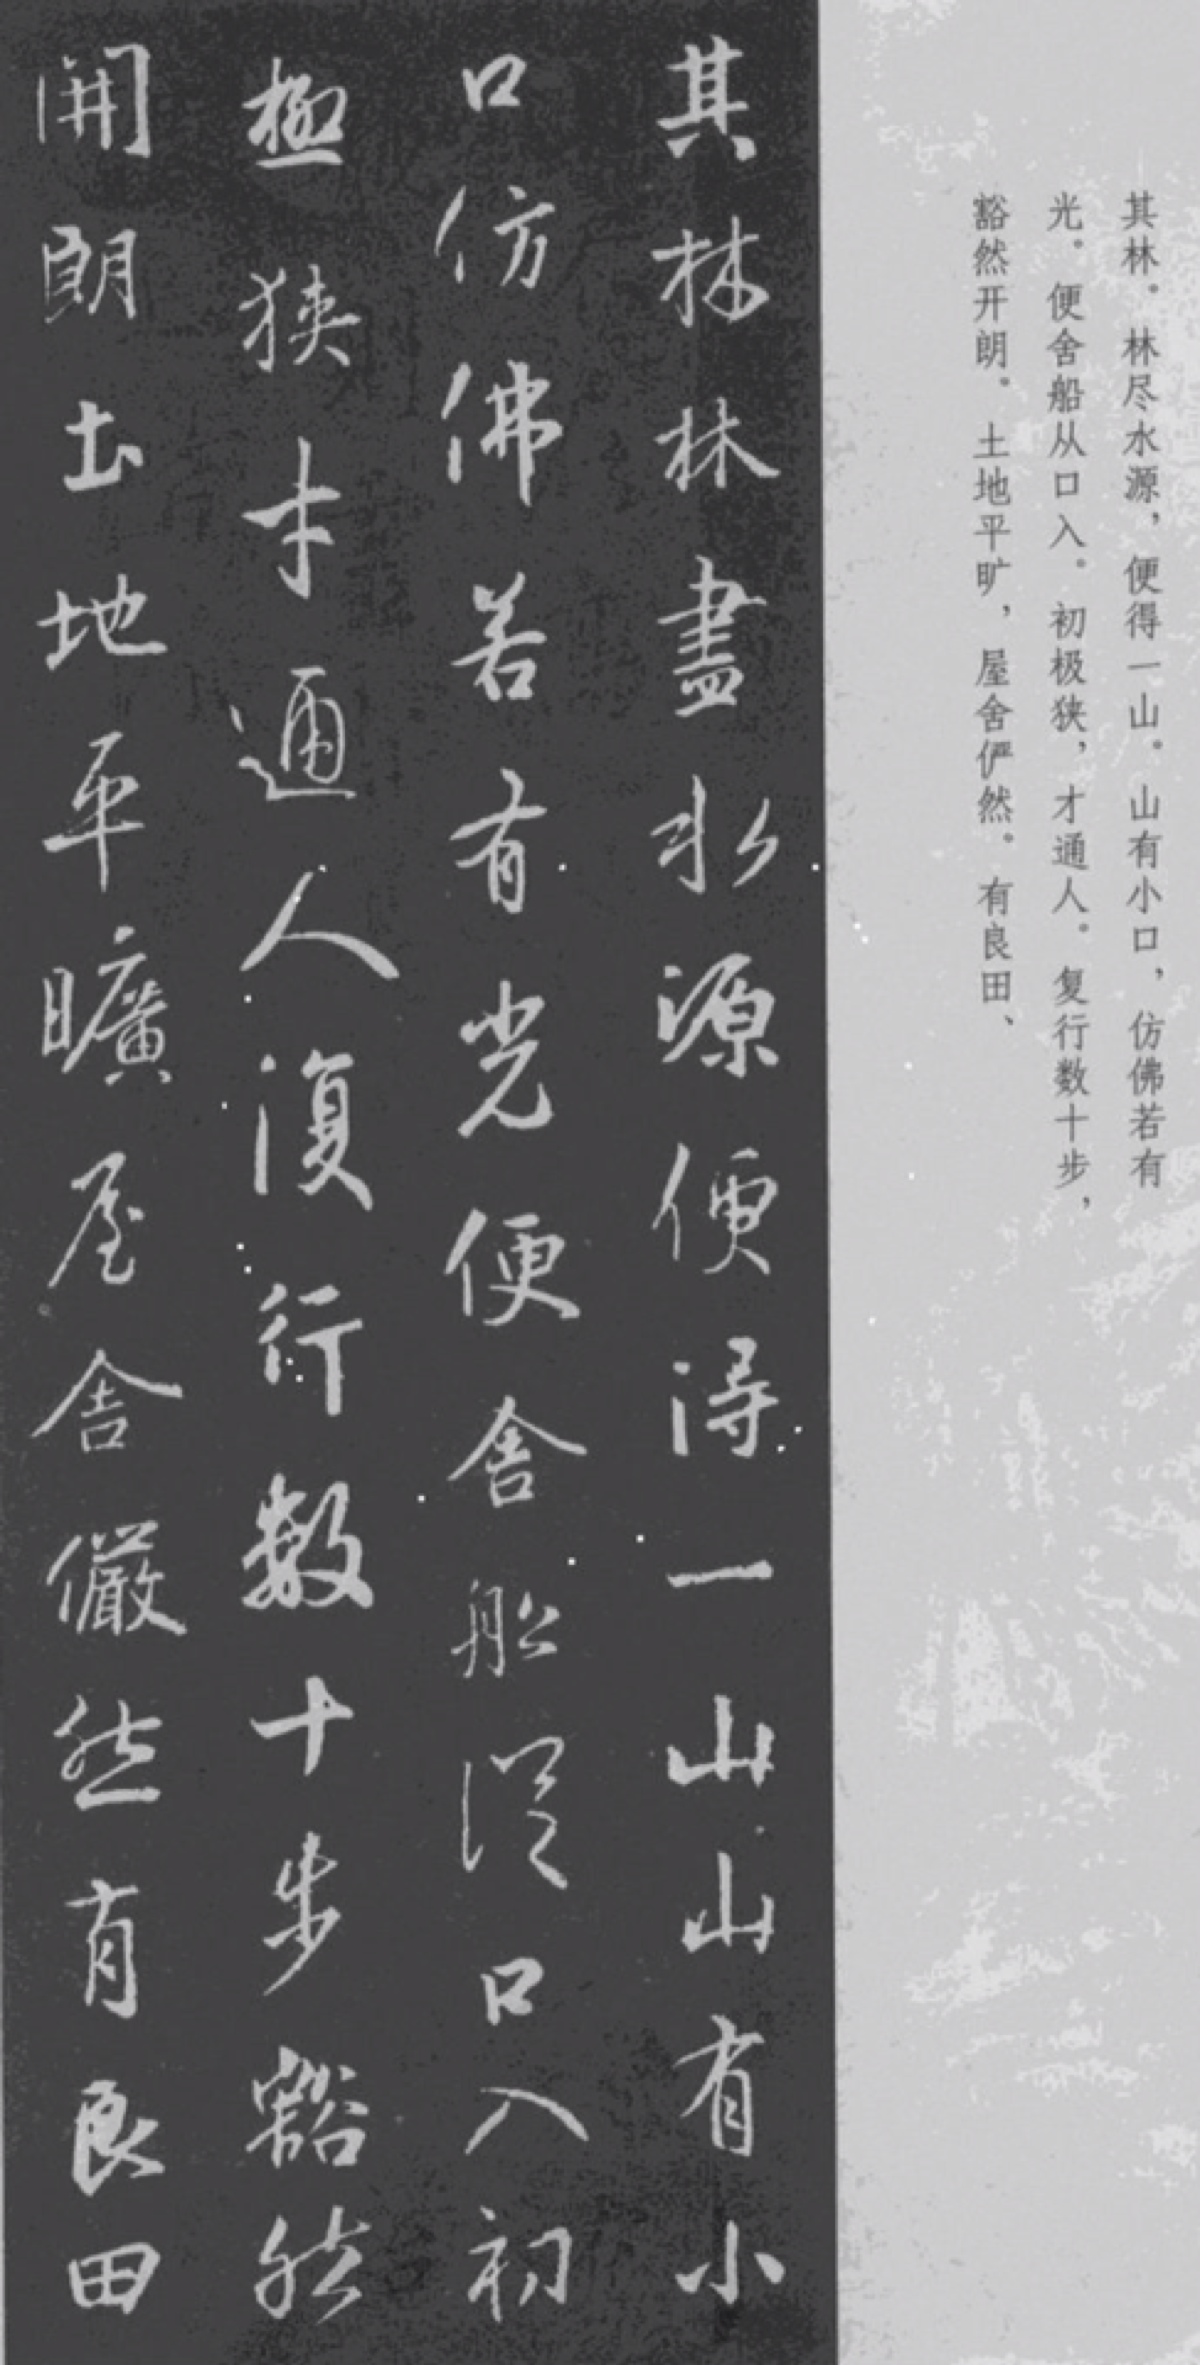 其林。林尽水源，便得一山。山有小口，仿佛若有
光。便舍船从口入。初极狭，才通人。复行数十步，
豁然开朗。土地平旷，屋舍俨然。有良田、
其林林盡水源便得一山山有小
口仿佛若有光便舍船從口入初
極狭才通人復行數十步豁然
開朗土地平曠屋舍儼然有良田